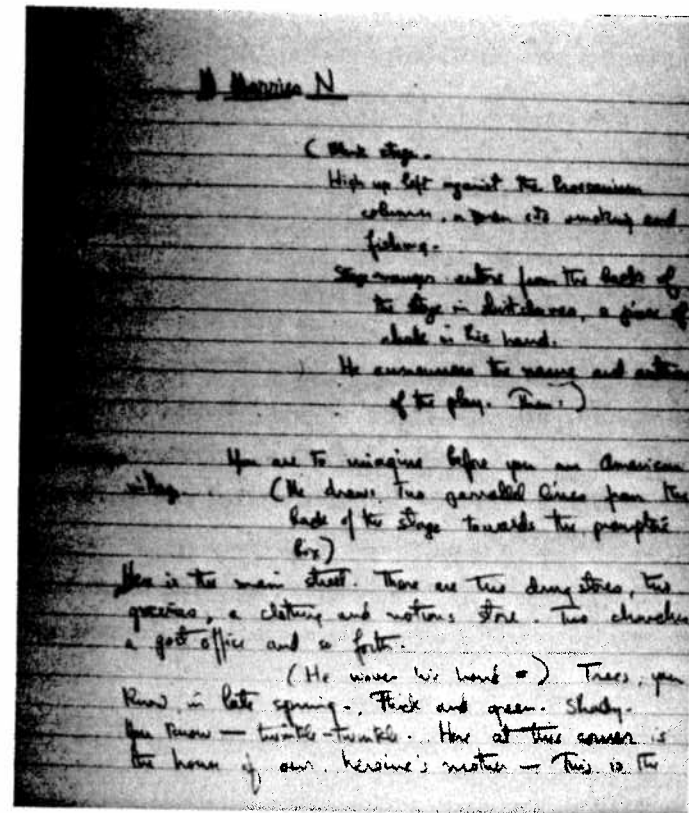 M Marries N
( Blank stage.
High up left against the Proscenium
column, a man sits smoking and
fishing.
Stage manager enters from the back of
the stage in shirtsleeves, a piece of
chalk in his hand.
He announces the name and author
of the play. Then:)
You are to imagine before you an American
village. (He draws two parralel lines from the
back of the stage towards the prompter's
box)
Here is the main street. There are two drug stores, two
groceries, a clothing and notions store. Two churches
a post office and so forth.
(He waves his hand) Trees, you
know, in late spring. Thick and green. Shady.
You know — twinkle-twinkle. Here at this corner is
the house of our heroine's mother — This is the